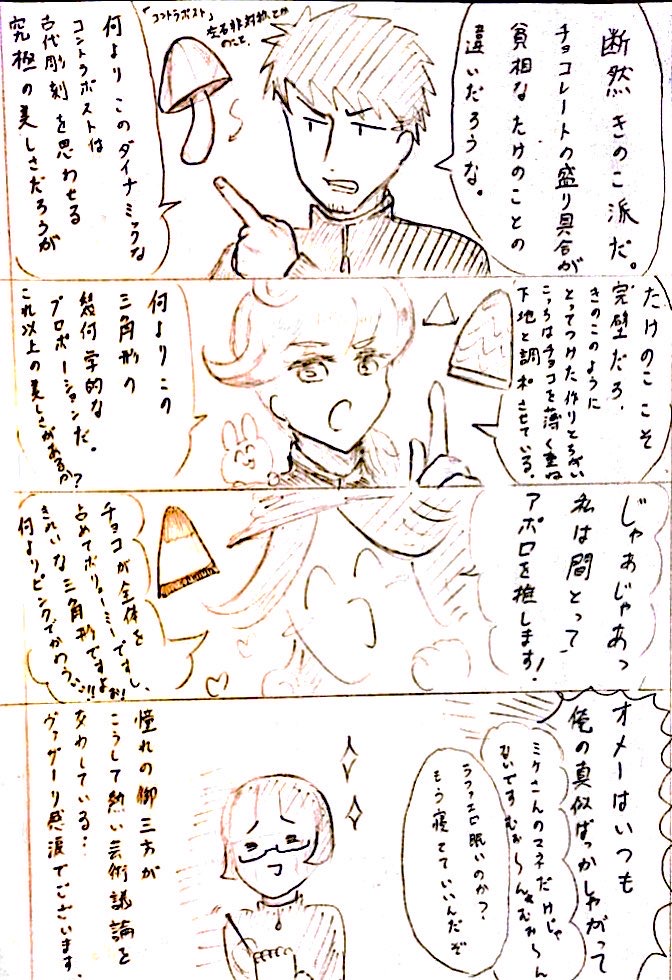 断然きのこ派だ。
チョコレートの盛り具合が
貧相なたけのことの
違いだろうな。
「コントラポスト」
左右非対称とか
のこと。
何よりこのダイナミックな
コントラポストは
古代彫刻を思わせる
究極の美しさだろうが
たけのここそ
完璧だろ。
きのこのように
とってつけた作りとちがい
こっちはチョコを薄く重ね
下地と調和させている。
何よりこの
三角形の
幾何学的な
プロポーションだ。
これ以上の美しさがあるか?
じゃあじゃあっ
私は間とって
アポロを推します!
チョコが全体を
占めてボリューミーですし、
きれいな三角形ですよぉ!
何よりピンクでかわうぃい!!
オメーはいつも
俺の真似ばっかしやがって
ミケさんのマネだけじゃ
ないですむぉ〜んむぉ〜ん
ラファエロ眠いのか?
もう寝てていいんだぞ
憧れの御三方が
こうして熱い芸術議論を
交わしている…
ヴァザーリ感涙でございます。